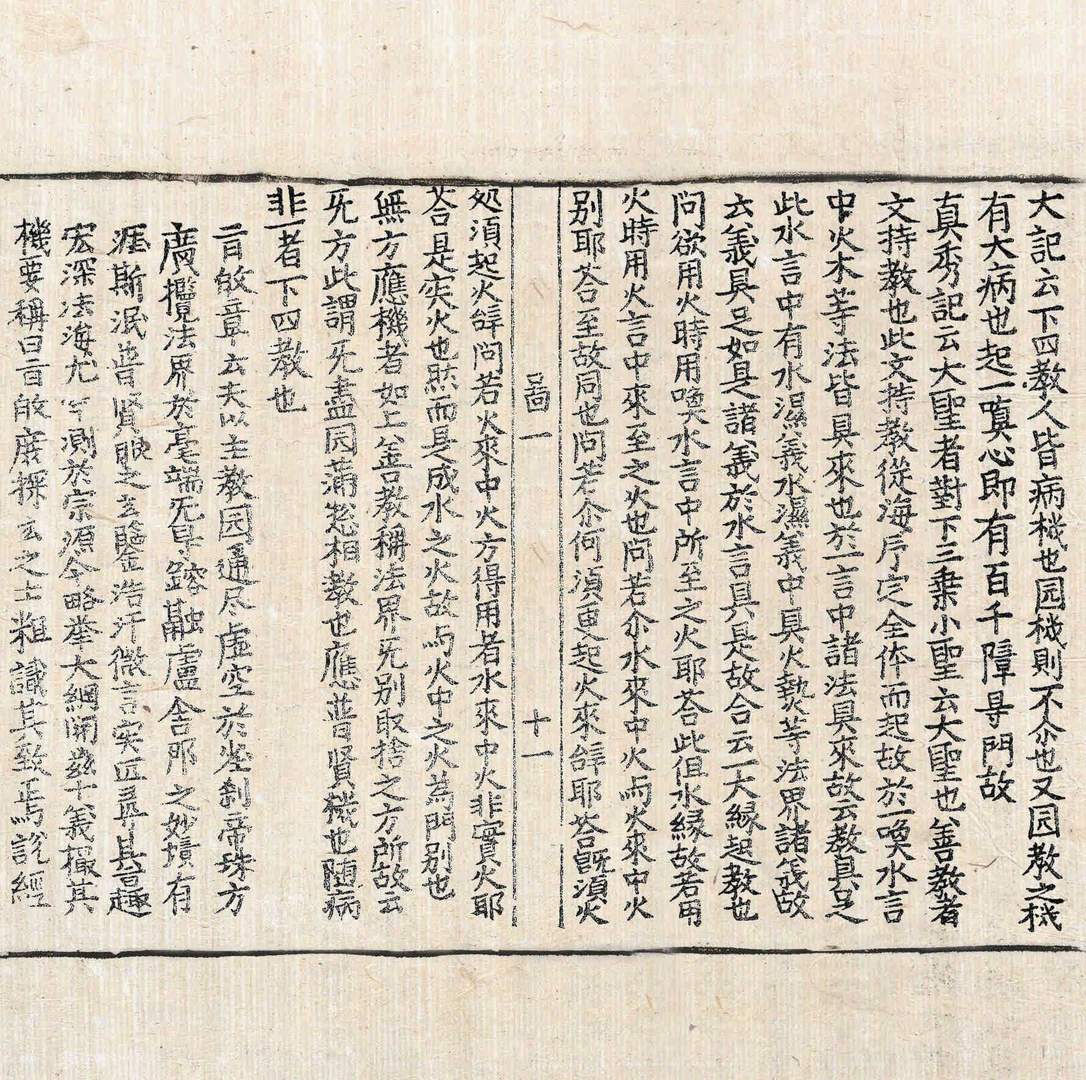 大記云下四教人皆病機也囩機則不尒也又囩教之機
有大病也起一嗔心即有百千障㝵門故
真秀記云大聖者對下三乘小聖云大聖也善教者
文持教也此文持教從海卬定全体而起故於一喚水言
中火木䓁法皆具來也於一言中諸法具來故云教具足
此水言中有水濕義水濕義中具火𤍠等法界諸義故
六義具足如是諸義於水言具是故合云一大縁起教也
問欲用火時用喚水言中所至之火耶荅此但水縁故若用
火時用火言中來至之火也問若尒水來中火与火來中火
別耶荅至故同也問若尒何湏更起火來辝耶荅旣湏火
啚一 十一
処湏起火辝問若火來中火方得用者水來中火非實火耶
荅是实火也然而是成水之火故与火中之火為門別也
無方應機者如上善教稱法界旡別取捨之方所故云
旡方此謂旡盡囩滿惣相教也應普賢機也随病
非一者下四教也
㫖㱾章云夫以主教囩通尽虚空於塵刹帝珠方
廣攬法界於毫端旡㝵鎔融盧舍那之妙境有
涯斯泯普賢眼之玄鑒浩汗微言实叵尋其㫖趣
宏深法海尤罕測於宗源今略举大綱開兹十義撮其
機要稱曰㫖㱾庶探玄之士粗識其致焉說經